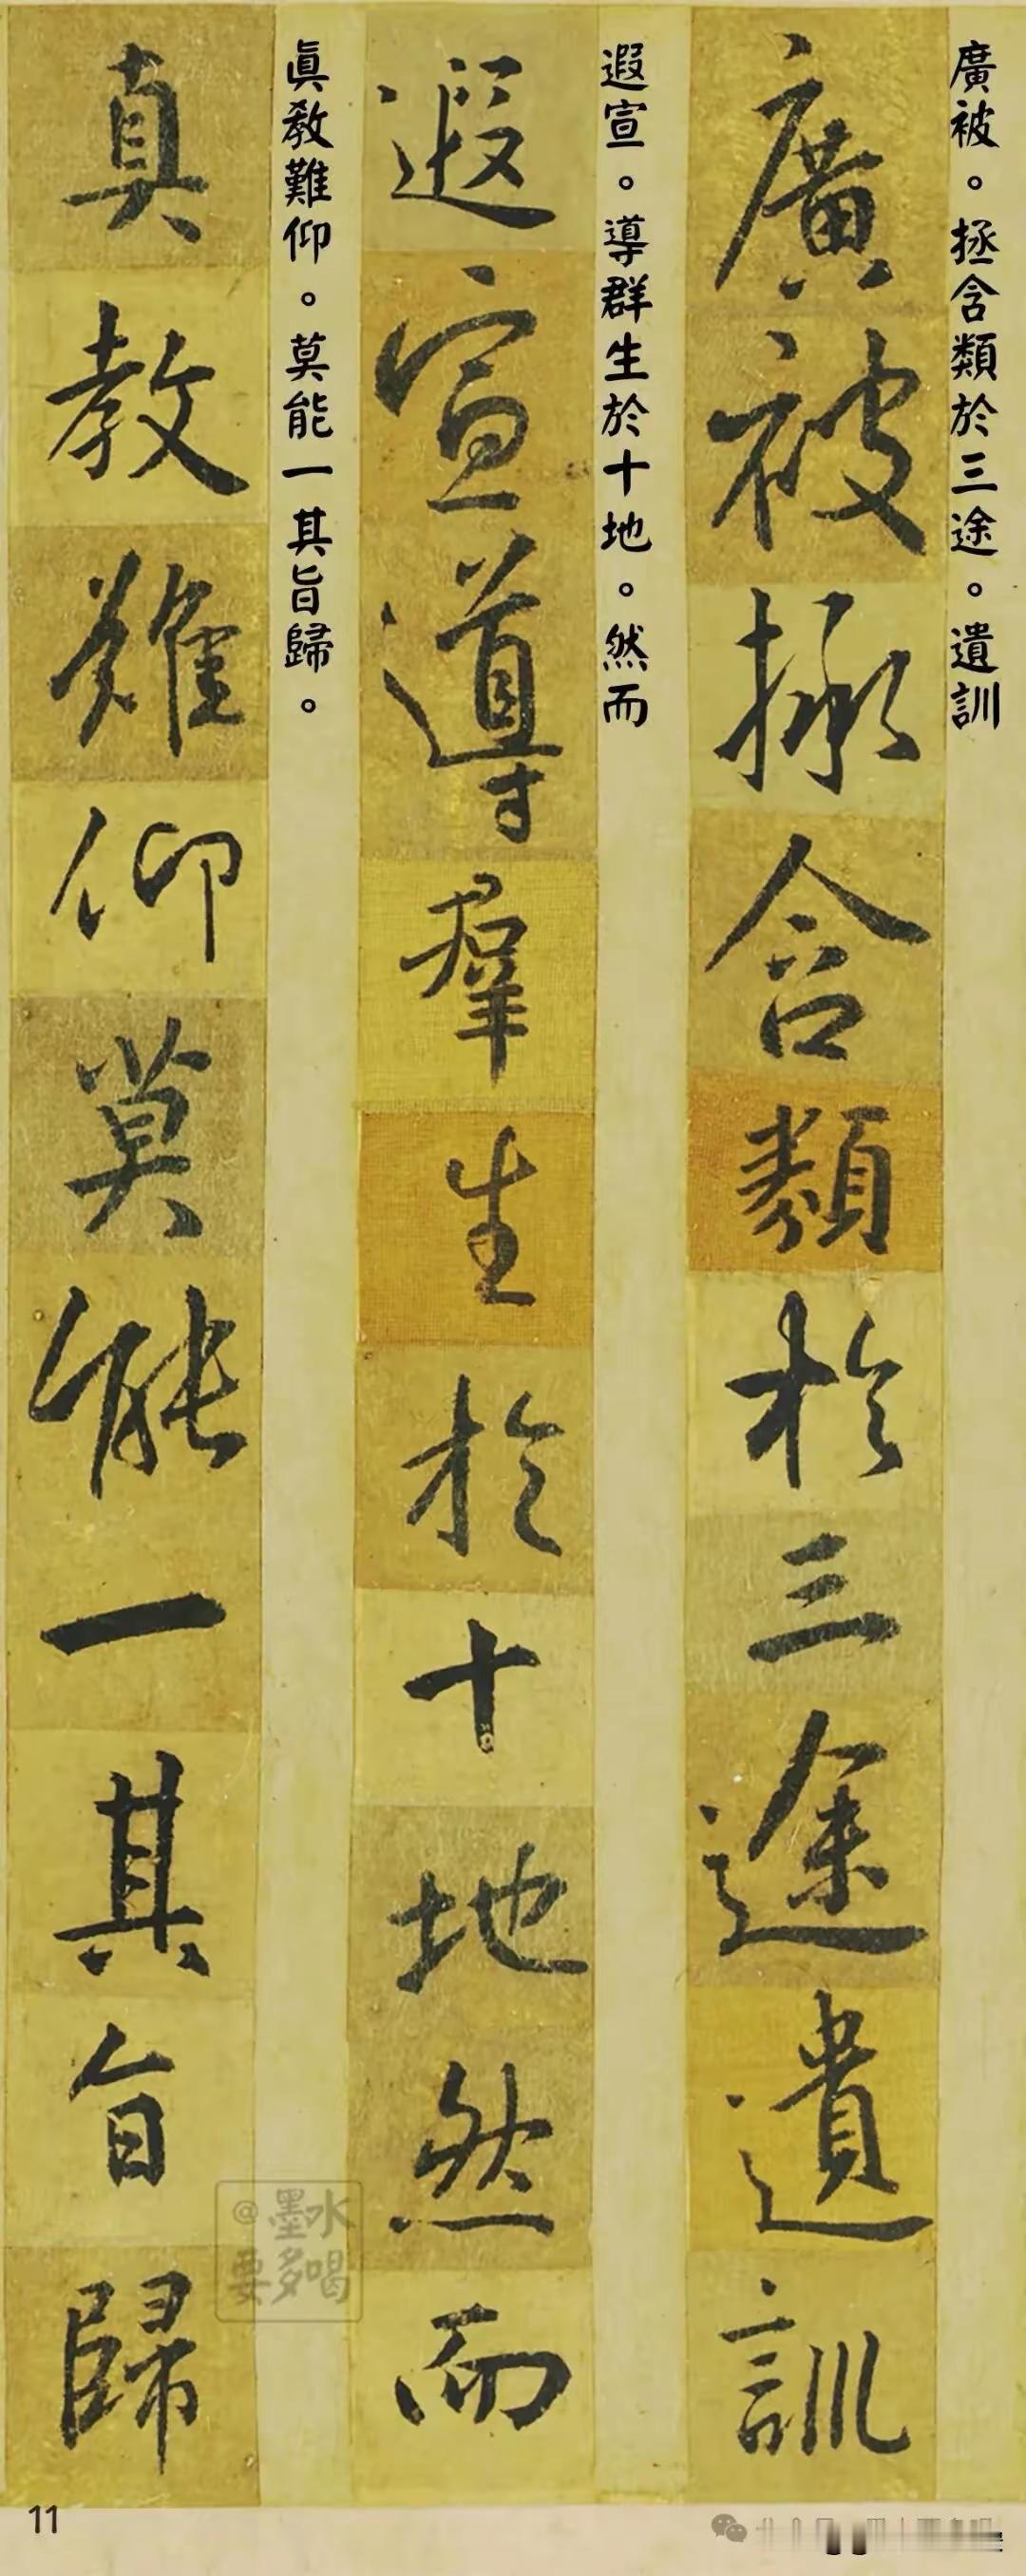 廣被。拯含類於三途。遺訓
廣被拯含類於三途遺訓
遐宣。導群生於十地。然而
遐宣導羣生於十地然而
眞教難仰。莫能一其旨歸。
真教難仰莫能一其旨歸
@墨水
要多喝
11